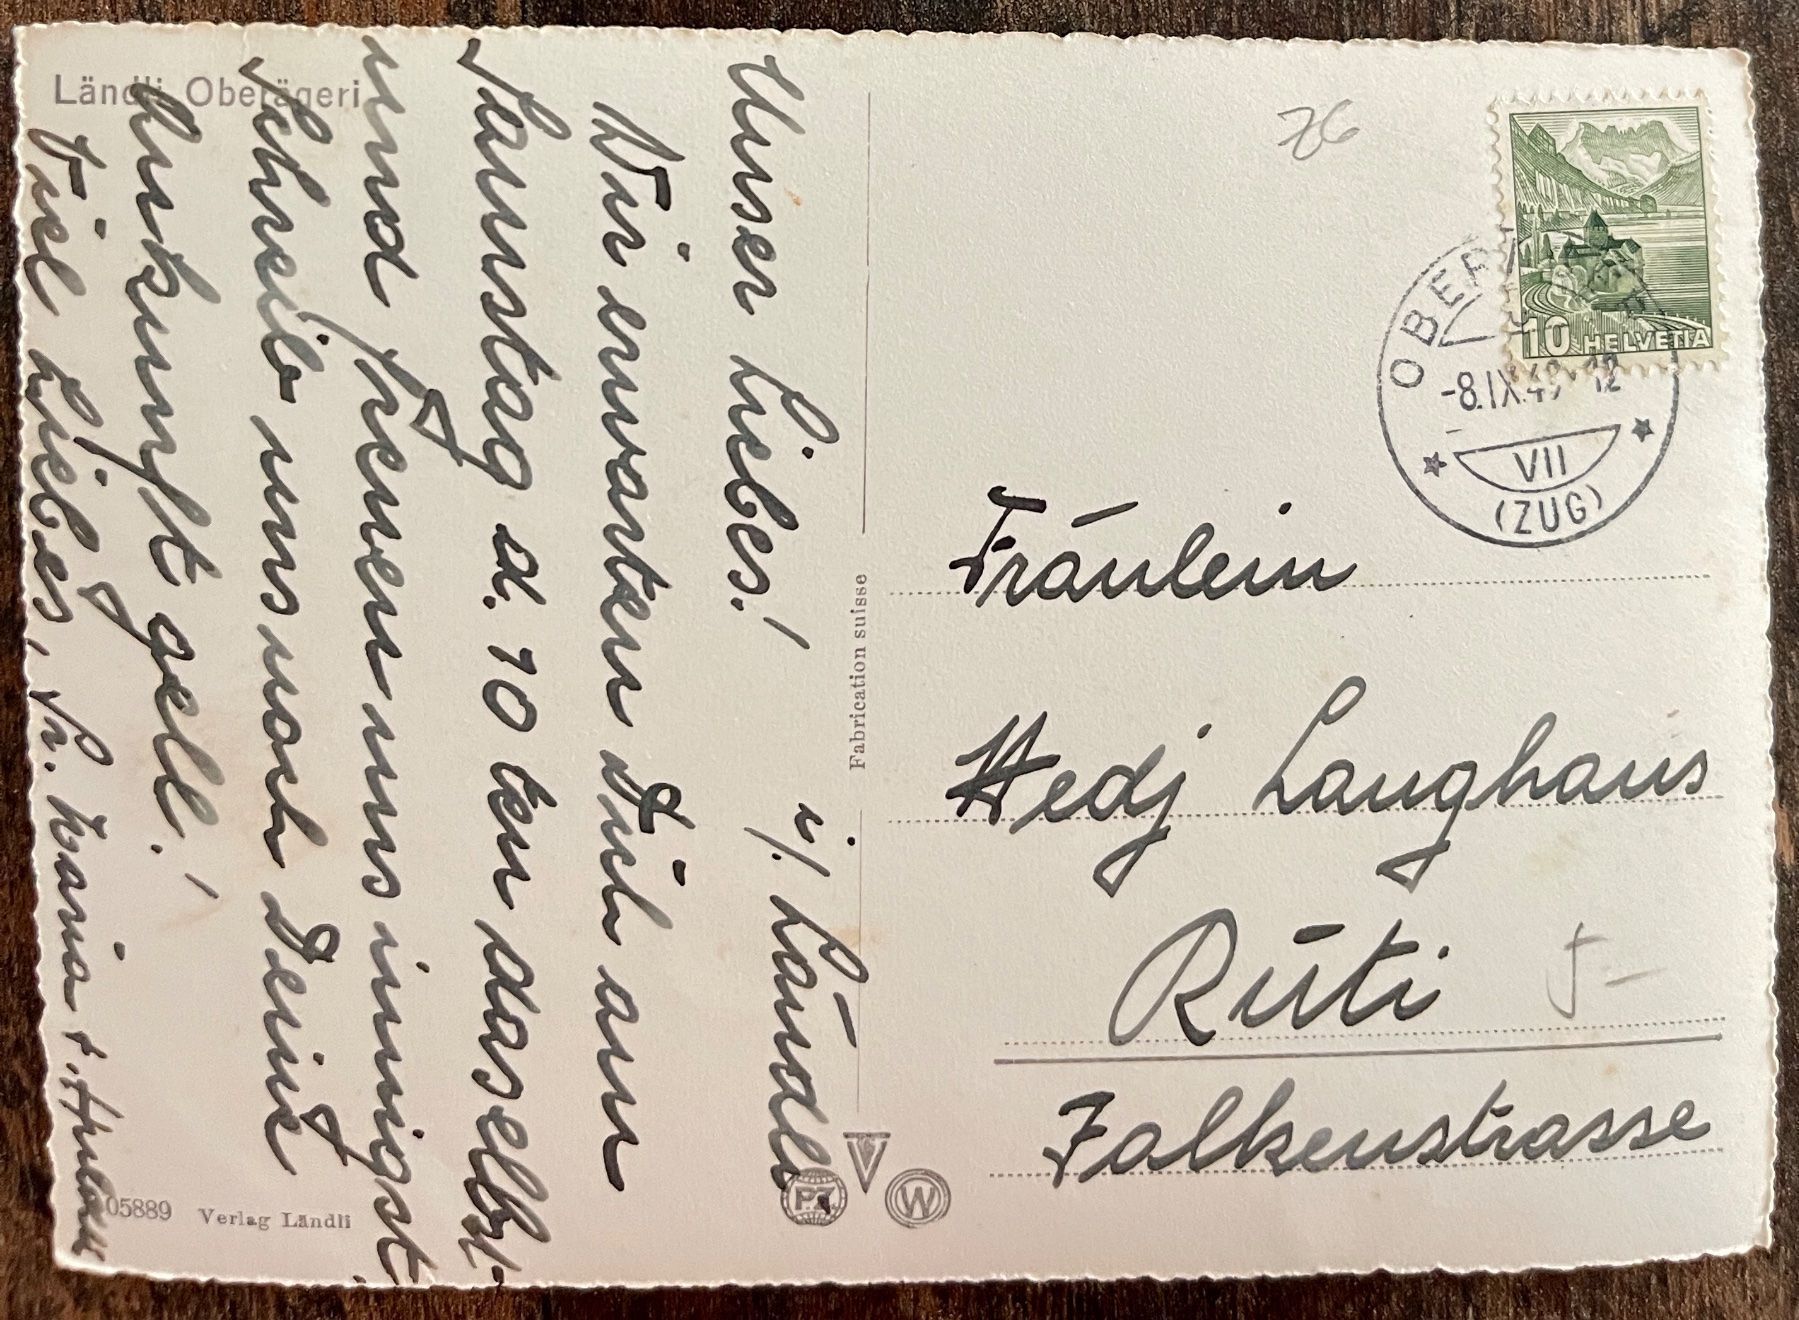 Ländli Oberägeri
Unser Liebes! i/. Ländli
Wir erwarten Dich am
Samstag d. 10ten daselbst
und freuen uns innigst.
Schreib uns noch Deine
Ankunft gell.!
Viel Liebes, Sr. Maria &.
05889 Verlag Ländli
Fabrication suisse
PZ W
76
10 HELVETIA
OBER
-8.IX.49 - 12
VII
(ZUG)
Fräulein
Hedj Langhans
Rüti
Falkenstrasse
5-